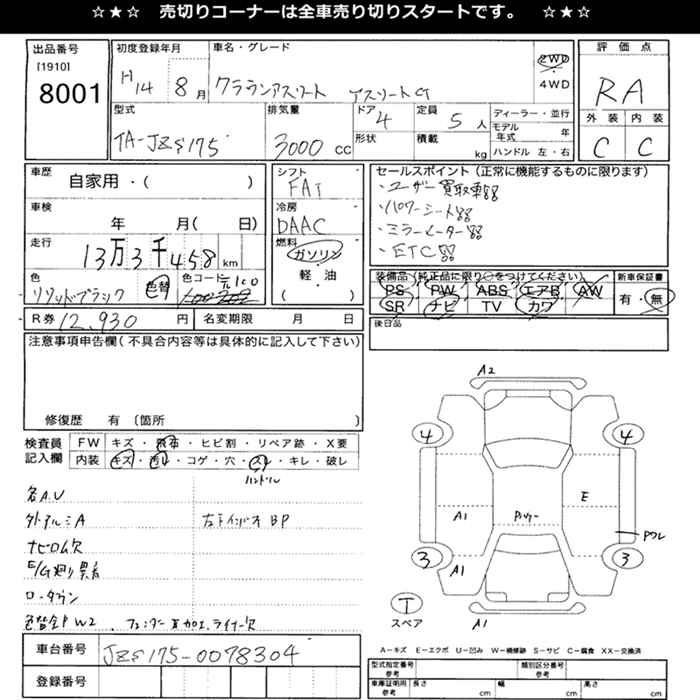 ☆★☆ 売切りコーナーは全車売り切りスタートです。 ☆★☆
出品番号
[1910]
8001
初度登録年月
H14 8月
車名・グレード
クラウンアスリート アスリートG
2WD
4WD
評価点
RA
外装 内装
C C
型式
TA-JZS175
排気量
3000 CC
ドア 4
形状
定員 5人
積載 kg
ディーラー・並行
モデル年式 年
ハンドル 左・右
車歴 自家用・( )
車検 年 月( 日)
走行 13万3千458 km
色 ソリッドブラック 色替 色コード
R券 12,930 円 名変期限 月 日
シフト
FAT
冷房
DAAC
燃料
ガソリン
軽・油
( )
セールスポイント(正常に機能するものに限ります)
・ユーザー買取車!!
・パワーシート!!
・ミラーメーター!!
・ETC!!
装備品(純正品に限り○をつけてください) 新車保証書
PS PW ABS エアB AW
SR ナビ TV カワ
有・無
後日品
注意事項申告欄(不具合内容等は具体的に記入して下さい)
修復歴 有(箇所 )
検査員記入欄
FW キズ・飛石・ヒビ割・リペア跡・X要
内装 キズ・汚レ・コゲ・穴・スレ・キレ・破レ
ハンドル
各A.U
外アルミA
ナビロム欠
E/G廻り異音
ローダウン
色替全P W2、フェンダー耳加工、ライナー欠
左下インパネ BP
車台番号 JZS175-0078304
登録番号
A2
4 4
A1 E
3 3
A1
A1
T
スペア
A-キズ E-エクボ U-凹み W-補修跡 S-サビ C-腐食 XX-交換済
型式指定番号 参考 類別区分番号 参考
車庫証明用 参考 長さ cm 幅 cm 高さ cm